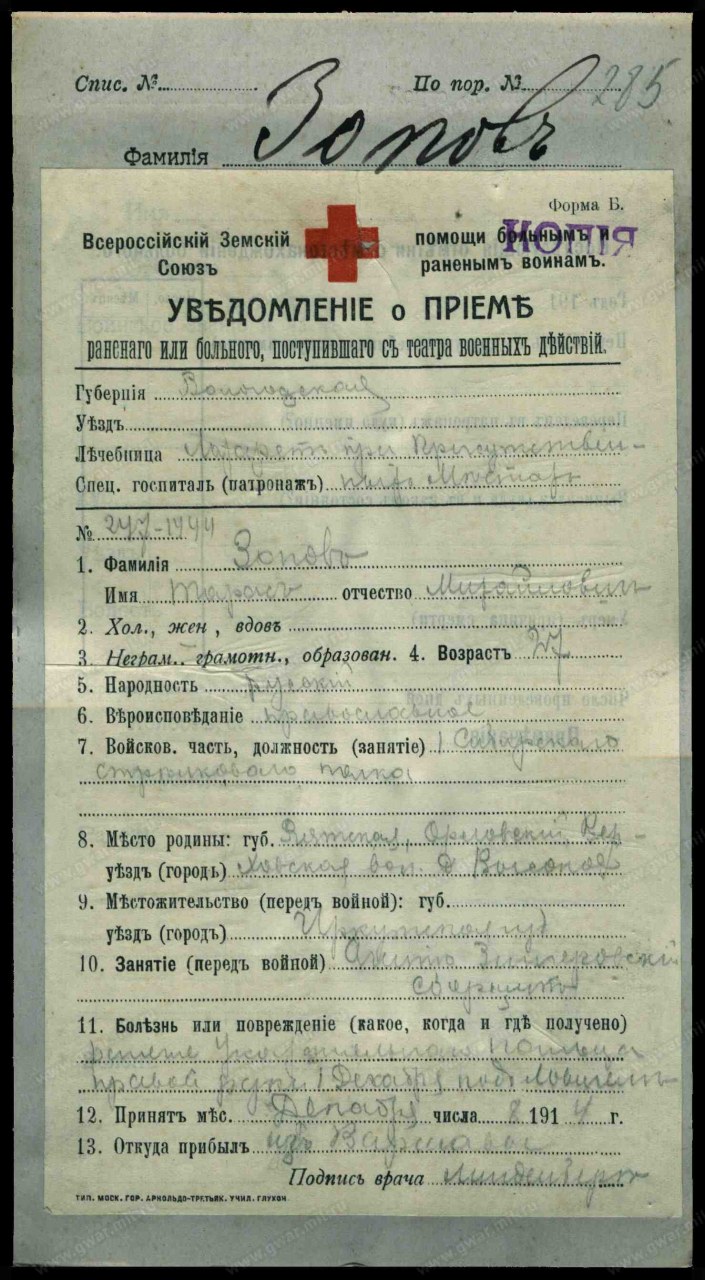 Спис. №
По пор. № 285
Фамилія Зоповъ
Форма Б.
КОПІЯ
Всероссійскій Земскій Союзъ
помощи больнымъ и раненымъ воинамъ.
УВѢДОМЛЕНІЕ о ПРІЕМѢ
раненаго или больного, поступившаго съ театра военныхъ дѣйствій.
Губернія Вологодская
Уѣздъ
Лѣчебница Лазаретъ при Присутствен-
Спец. госпиталь (патронажъ) ныхъ Мѣстахъ
№ 247-1944
1. Фамилія Зоповъ
Имя Тарасъ отчество Михайловичъ
2. Хол., жен, вдовъ
3. Неграм. грамотн., образован. 4. Возрастъ 27
5. Народность русскій
6. Вѣроисповѣданіе православное
7. Войсков. часть, должность (занятіе) 1 Сибирскаго
стрѣлковаго полка
8. Мѣсто родины: губ. Вятская, Орловскій Вер-
уѣздъ (городъ) ховская вол. д.
9. Мѣстожительство (передъ войной): губ.
уѣздъ (городъ) Иркутская губ
10. Занятіе (передъ войной)
11. Болѣзнь или поврежденіе (какое, когда и гдѣ получено)
раненіе Указательнаго Пальца
правой руки 1 Декабря подъ Ловичемъ
12. Принятъ мѣс. Декабря числа 8 1914 г.
13. Откуда прибылъ изъ Варшавы
Подпись врача Линденбергъ
ТИП. МОСК. ГОР. АРНОЛЬДО-ТРЕТЬЯК. УЧИЛ. ГЛУХОН.